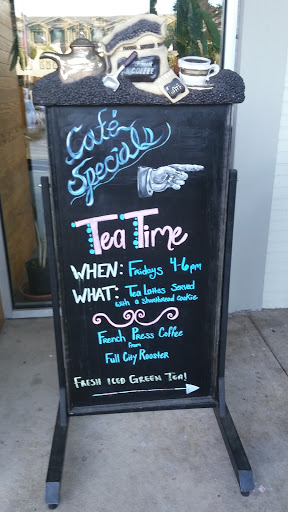 COFFEE
Café
Specials
Tea Time
WHEN: Fridays 4-6pm
WHAT: Tea Lattes Served
with a shortbread cookie
French Press Coffee
from
Full City Rooster
FRESH ICED GREEN TEA!